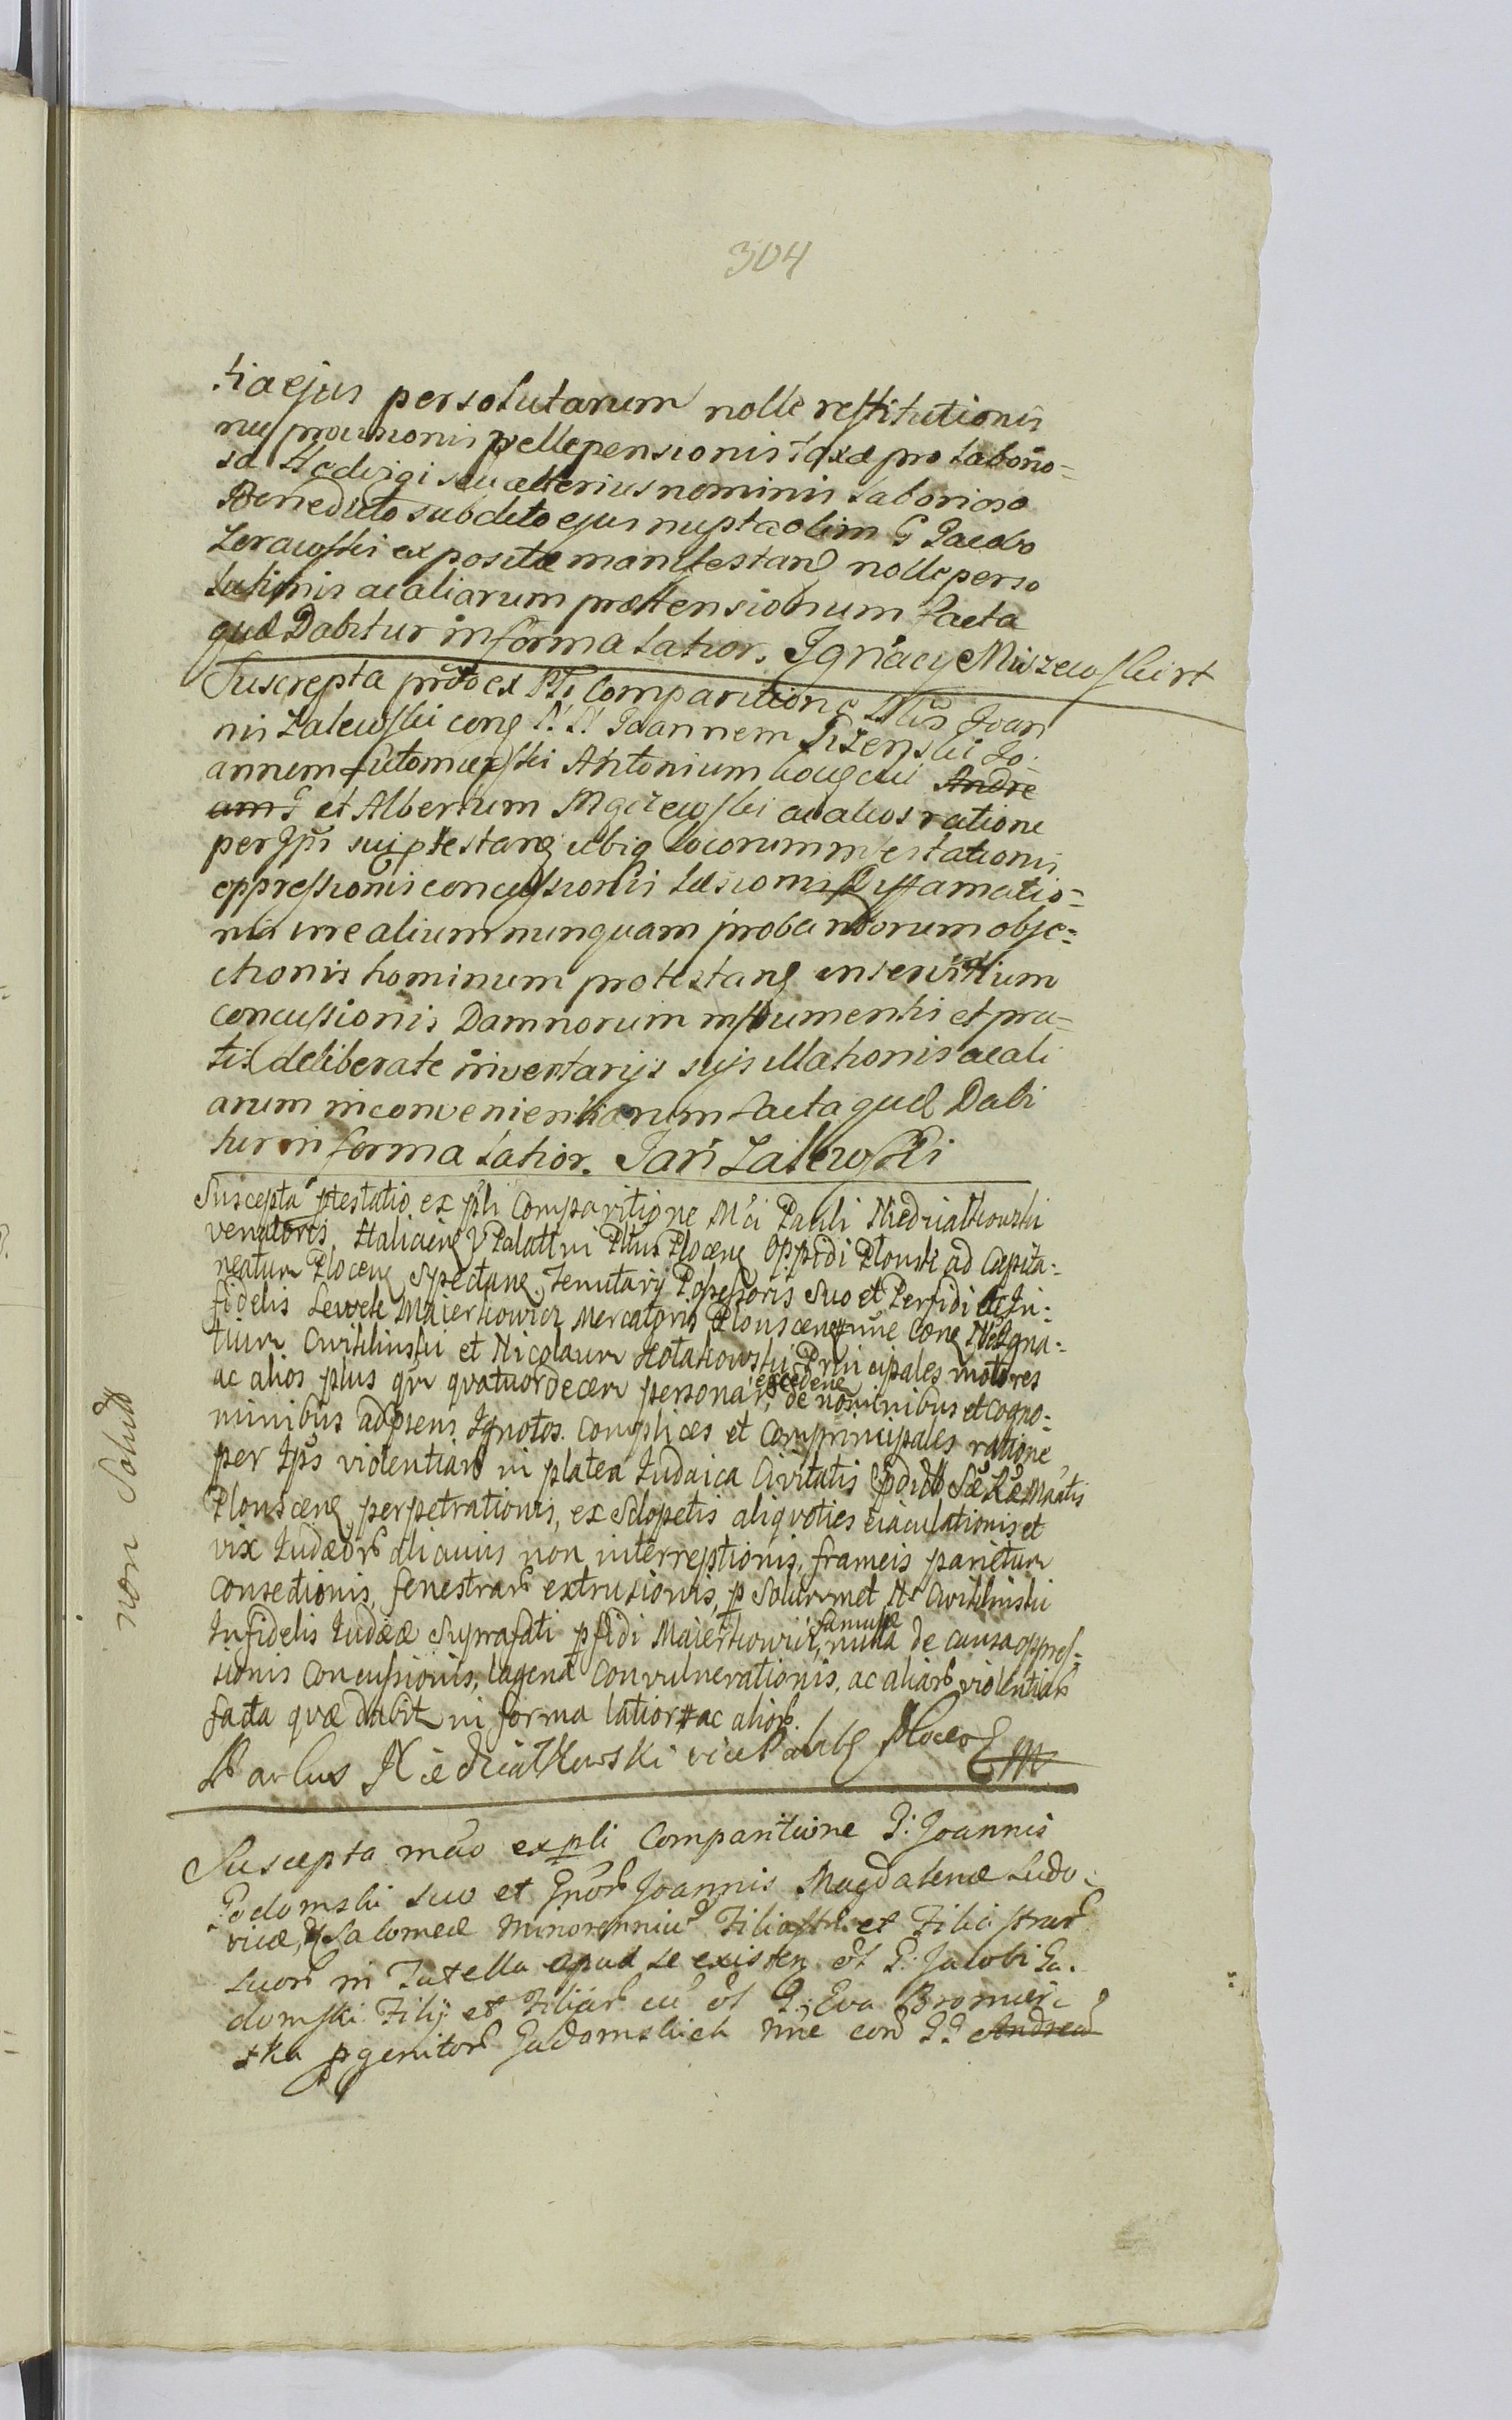 304
tia ejus persolutarum nolle restitutionis
nec provisionis vellepensionis taxæ pro laborio=
sa Hedvigi seu alterius nominis laborioso
Benedicto subdito ejus nupta olim G Jacobo
Zerawski exposita manifestan nolle perso
lutionis ac aliarum prættensionum facta
quæ Dabitur in forma latior. Ignacy Miszewski rt
Suscepta ex Pli Comparitione Joan
nis Zalewski cong N. N. Joannem Jo
annem Antonium Andre
am et Albertum ac alios ratione
per Ips suiptestang ubiq locorum infestationis
oppressionis concussionis læsionis Diffamatio=
nis irre alium nunquam probandorum obje=
ctionis hominum protestang in servitium
concussionis Damnorum in frumentis et pra=
tis deliberate inventarijs sujs illationis ac ali
arum inconvenientiarum facta quæ Dabi
tur in forma latior. Jan Zalewski
Suscepta ptestatio ex pli Comparitione M'ci Pauli Niedzialkowski
venatoris, Haliciens V Palattini Pltus Plocens Oppidi Plonsk ad Capita=
neatum Plocens Spectans, Tenutarij Possessoris Suo et Perfidi ac In=
fidelis Lewek Maierkowicz Mercatoris Plonscens nunc Cong Igna=
tium Cwiklinski et Nicolaum Kotarkowski Principales motores
ac alios plus qm quatuordecem personar excedens, de nominibus et cogno=
minibus adpræns Ignotos. Complices et Comprincipales ratione
per Ips violentiar in platea Judaica Civitatis Sæ Ræ Mattis
Plonscens perpetrationis, ex Sclopetis aliqvoties eiaculationis et
vix Judæor alicuius non interreptionis, frameis parietum
Consectionis, fenestrar extrusionis, p Solummet Cwiklinski
Infidelis Judææ Suprafati pfidi Maierkowicz, famulæ nulla de causa oppres=
sionis Concussionis, lagena Convulnerationis, ac aliar violentiar
facta quæ dabit in forma latior ac alior.
Paulus Niedzialkowski vice Palat Plocen
non Solut
Suscepta ex pli Comparitione G: Joannis
Gadomski suo et Gnor Joannis Magdalenæ Ludo=
vicæ, et Salomeæ Minorenniu Filiastri et Filiastrar
suor in Tutella apud se existen ol G. Jacobi Ga=
domski Filij et Filiar cu ol G: Eva Bromier=
ska pgenitor Gadomskich nunc con GG Andream